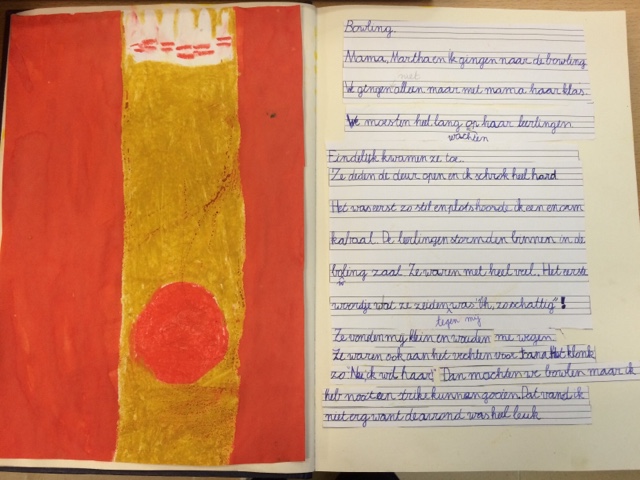 Bowling.
Mama, Martha en ik gingen naar de bowling
niet
We gingen alleen maar met mama haar klas.
We moesten heel lang op haar leerlingen
wachten
Eindelijk kwamen ze toe..
Ze deden de deur open en ik schrok heel hard
Het was eerst zo stil en plots hoorde ik een enorm
kabaal. De leerlingen stormden binnen in de
zaal. Ze waren met heel veel.. Het eerste
woordje wat ze zeiden was "Oh, zo schattig"!
tegen mij
Ze vonden mij klein en wouden me wegen
Ze waren ook aan het vechten voor Het klonk
zo "Nee, ik wil haar!" Dan mochten we bowlen maar ik
heb nooit een strike kunnen gooien. Dat vond ik
niet erg want de avond was heel leuk